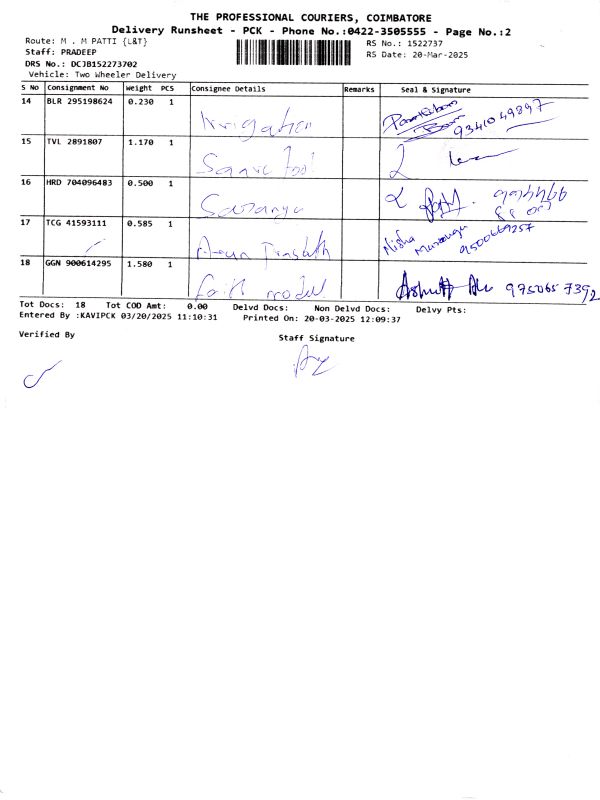 THE PROFESSIONAL COURIERS, COIMBATORE
Delivery Runsheet - PCK - Phone No.:0422-3505555 - Page No.:2
Route: M . M PATTI {L&T}
RS No.: 1522737
Staff: PRADEEP
RS Date: 20-Mar-2025
DRS No.: DCJB152273702
Vehicle: Two Wheeler Delivery
S No Consignment No Weight PCS Consignee Details Remarks Seal & Signature
14 BLR 295198624 0.230 1
Irrigation 9341049897
15 TVL 2891807 1.170 1
16 HRD 704096483 0.500 1
Saranya
17 TCG 41593111 0.585 1
Arun Nisha 9500669257
18 GGN 900614295 1.580 1
model 9750657392
Tot Docs: 18 Tot COD Amt: 0.00 Delvd Docs: Non Delvd Docs: Delvy Pts:
Entered By :KAVIPCK 03/20/2025 11:10:31 Printed On: 20-03-2025 12:09:37
Verified By
Staff Signature